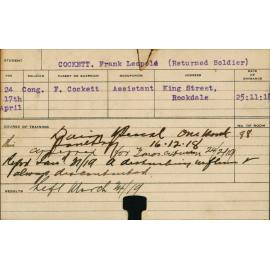 STUDENT
COCKETT. Frank Leopold (Returned Soldier)
AGE RELIGION PARENT OR GUARDIAN OCCUPATION ADDRESS DATE OF ENTRANCE
24 Cong. F. Cockett Assistant King Street, 25:11:18
17th Rockdale
April
COURSE OF TRAINING NO. OF ROOM
One Month 98
16.12.18
24/2/19
A disturbing influence &
always discontented.
RESULTS
Left March /19